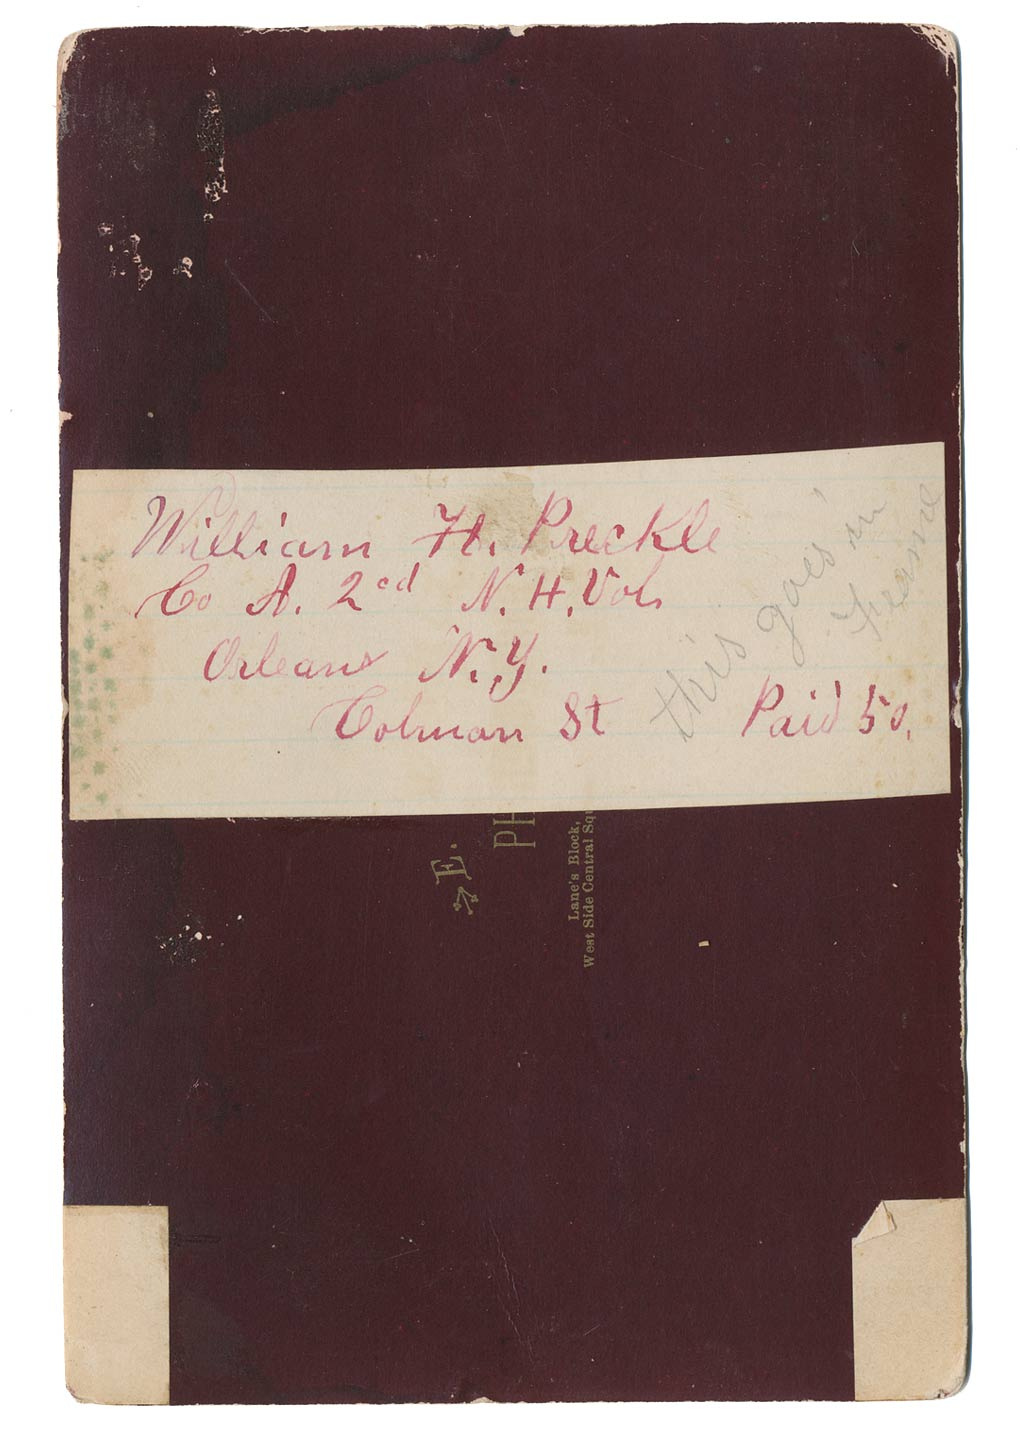 William H. Preckle
Co A. 2nd N. H. Vols
Orleans N.Y.
Colman St Paid 50.
this goes in
Frame
E.
PH
Lane's Block,
West Side Central Squ